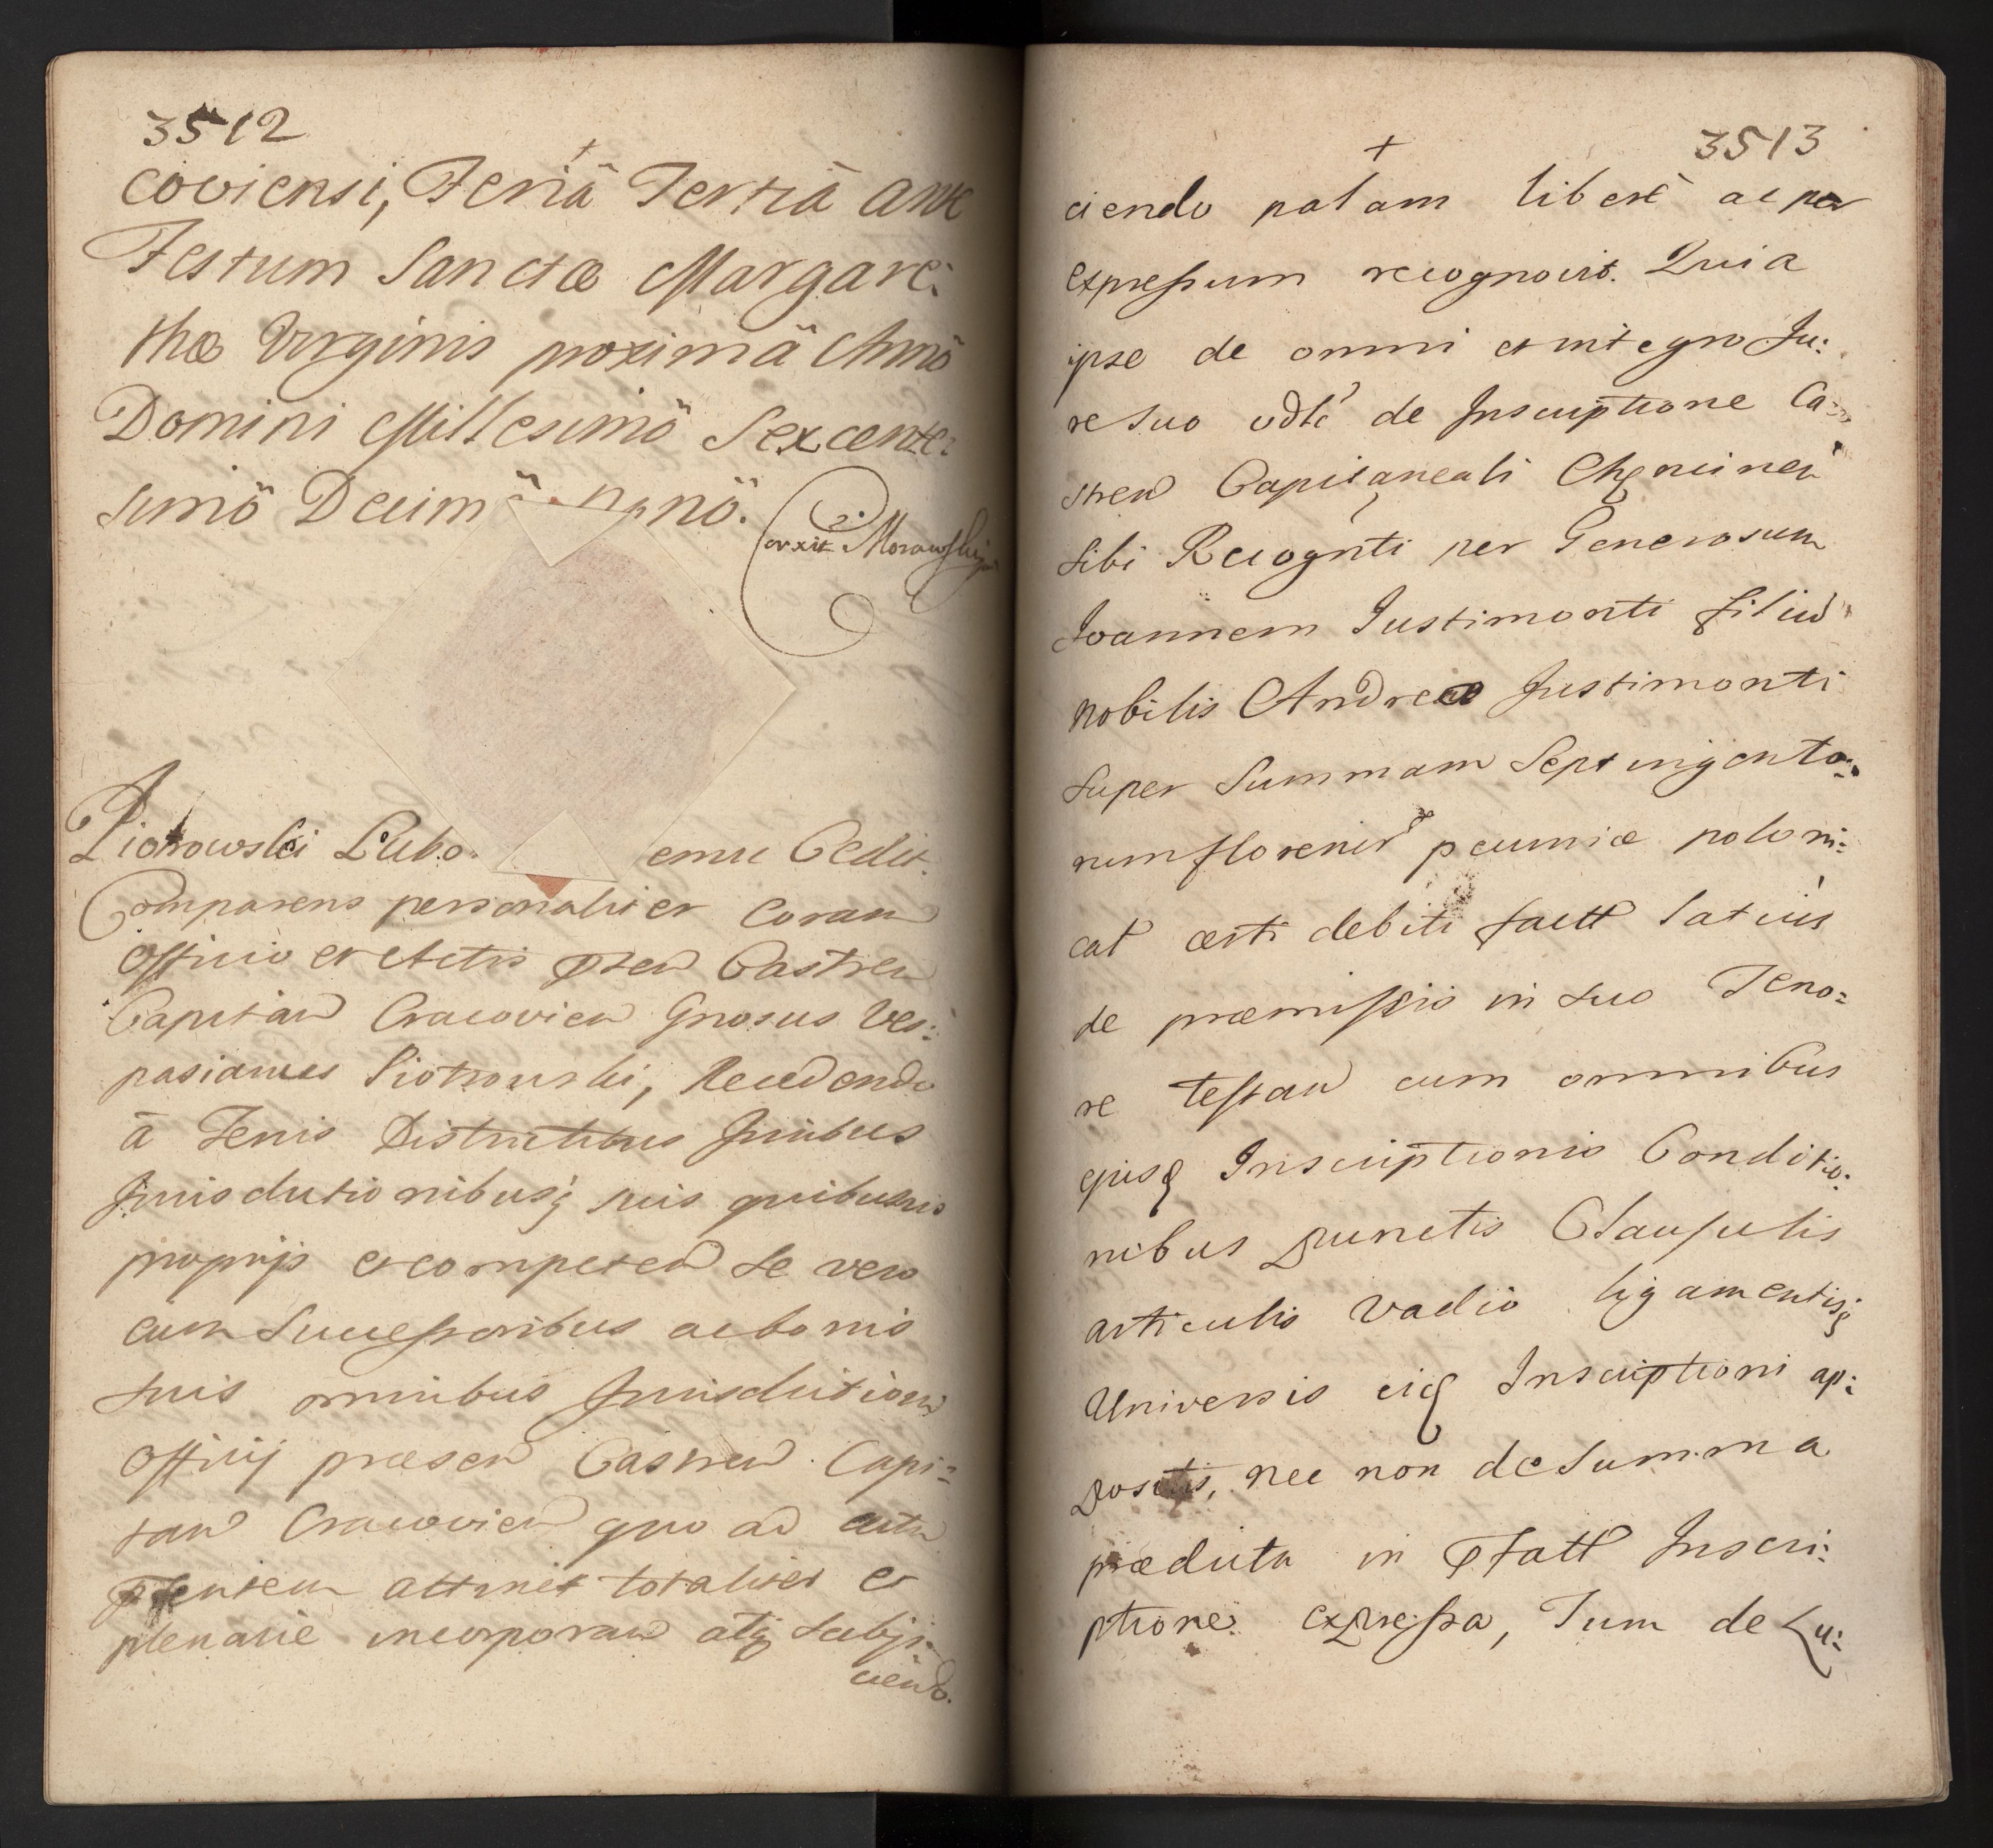 3512
+
coviensi, Feriâ Tertiâ Ante
Festum Sanctæ Margare:
thæ Virginis proximâ Annô
Domini Millesimô Sexcente:
simô Decimô nonô.
Corxit Morawski
Piotrowski Lubo emu Cedit.
Comparens personaliter coram
Officio et Actis pten Castren
Capitan Cracovien Gnosus Ves:
pasianus Piotrowski, Recedendo
à Terris Districtibus Juribus
Jurisdictionibusq suis quibusvis
proprijs et competen se vero
cum Successoribus ac bonis
suis omnibus Jurisdictioni
Officij præsen Castren Capi=
tan Cracovien quo ad actum
ptentem attinet totaliter et
plenarie incorporan atq subji:
ciendo.
3513
+
ciendo palam liberè ac per
expressum recognovit. Quia
ipse de omni et integro Ju:
re suo vdtc de Inscriptione Ca:
stren Capitaneali Chęcinen
sibi Recognti per Generosum
Joannem Justimonti filiu
nobilis Andreæ Justimonti
super Summam Septingento:
rum florenor pecuniæ poloni:
cal certi debiti factt latiùs
de præmissis in suo Teno=
re testan cum omnibus
ejusq Inscriptionis Conditio:
nibus punctis Clausulis
articulis vadio ligamentisq
Universis eiq Inscriptioni ap:
positis, nec non de Summa
prædicta in pfatt Inscri:
ptione expressa, Tum de Lu: